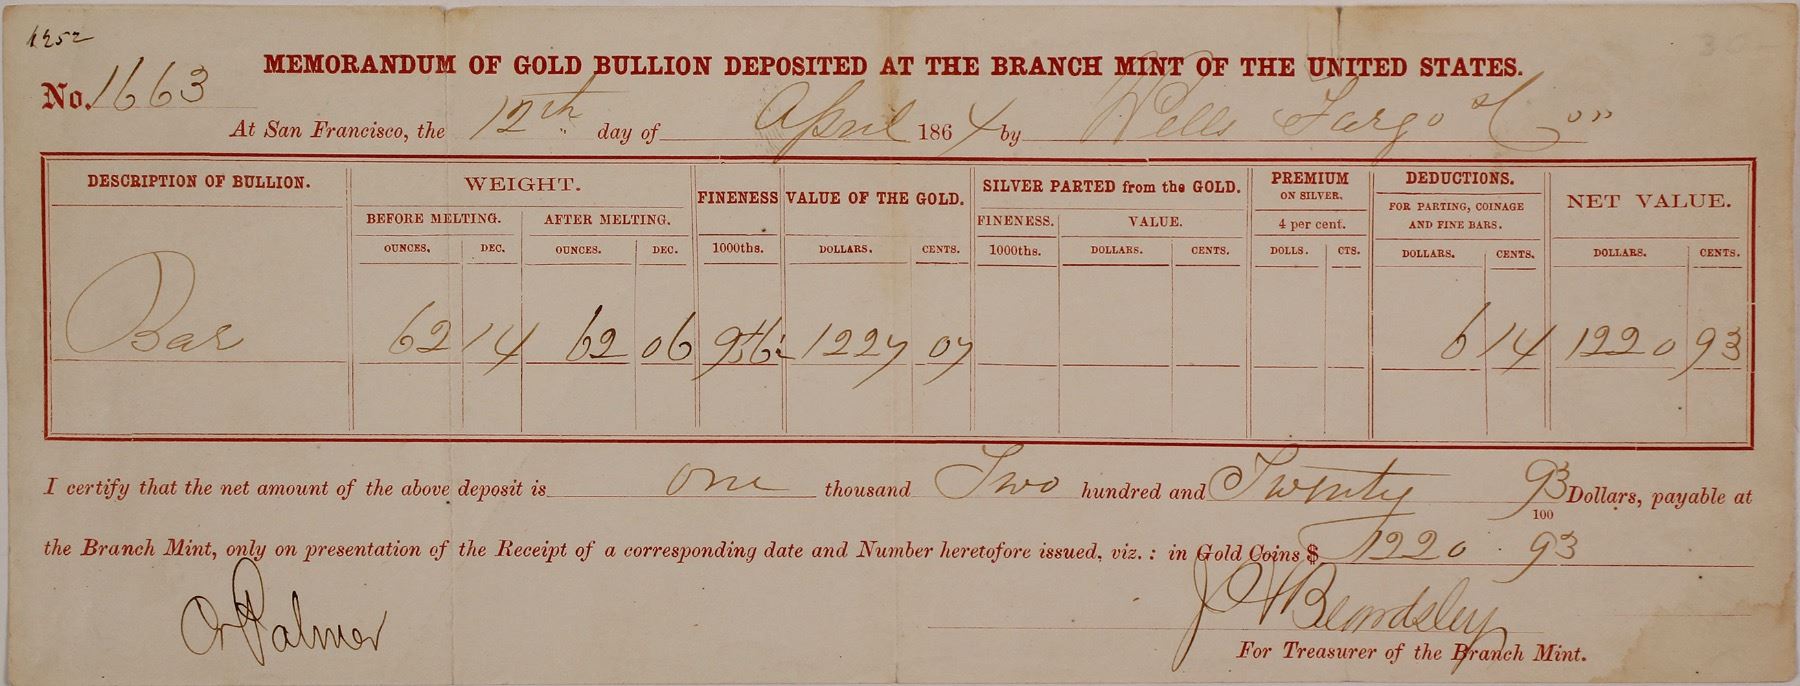 1252
MEMORANDUM OF GOLD BULLION DEPOSITED AT THE BRANCH MINT OF THE UNITED STATES.
No. 1663
At San Francisco, the 12th day of April 1864 by Wells Fargo & Co
DESCRIPTION OF BULLION. WEIGHT. FINENESS VALUE OF THE GOLD. SILVER PARTED from the GOLD. PREMIUM ON SILVER. DEDUCTIONS. NET VALUE.
BEFORE MELTING. AFTER MELTING. FINENESS. VALUE. 4 per cent. FOR PARTING, COINAGE AND FINE BARS.
OUNCES. DEC. OUNCES. DEC. 1000ths. DOLLARS. CENTS. 1000ths. DOLLARS. CENTS. DOLLS. CTS. DOLLARS. CENTS. DOLLARS. CENTS.
Bar 62 14 62 06 1227 07 6 14 1220 93
I certify that the net amount of the above deposit is one thousand Two hundred and Twenty 93/100 Dollars, payable at
the Branch Mint, only on presentation of the Receipt of a corresponding date and Number heretofore issued, viz.: in Gold Coins $ 1220.93
Palmer
Beardsley
For Treasurer of the Branch Mint.